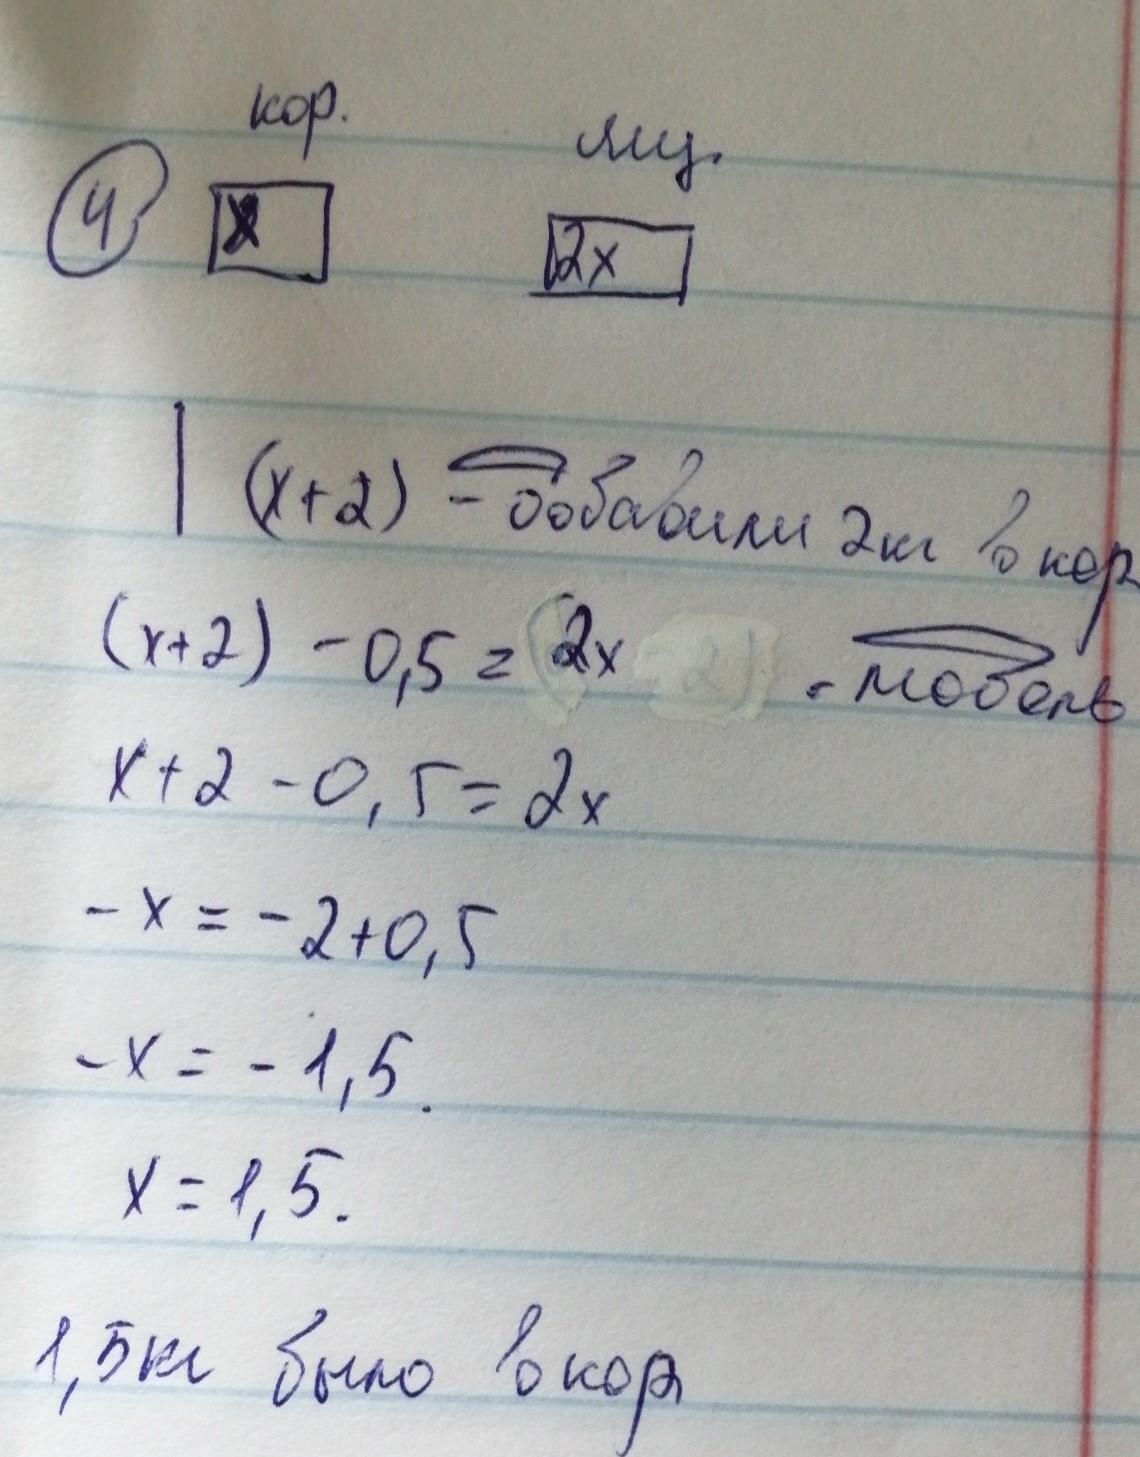 кор.
ящ.
4
x
2x
(x+2) - добавили 2кг в кор
(x+2) - 0,5 = 2x - модель
x+2 - 0,5 = 2x
-x = -2+0,5
-x = -1,5.
x = 1,5.
1,5кг было в кор